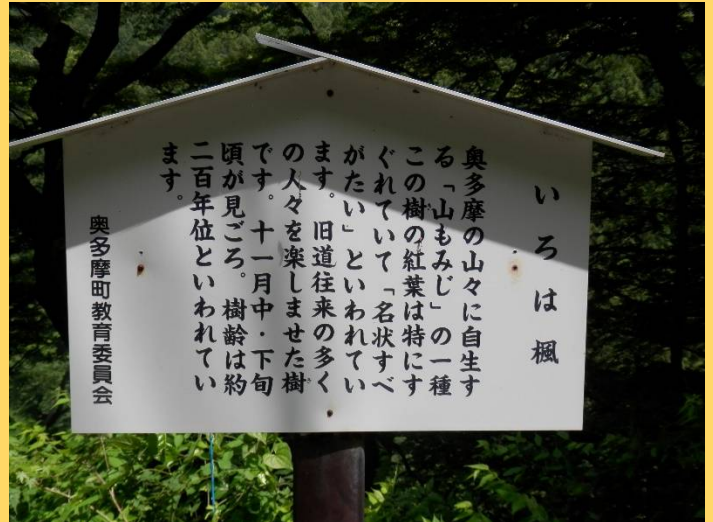 いろは楓
奥多摩の山々に自生す
る「山もみじ」の一種
この樹の紅葉は特にす
ぐれていて「名状すべ
がたい」といわれてい
ます。旧道往来の多く
の人々を楽しませた樹
です。十一月中・下旬
頃が見ごろ。樹齢は約
二百年位といわれてい
ます。
奥多摩町教育委員会